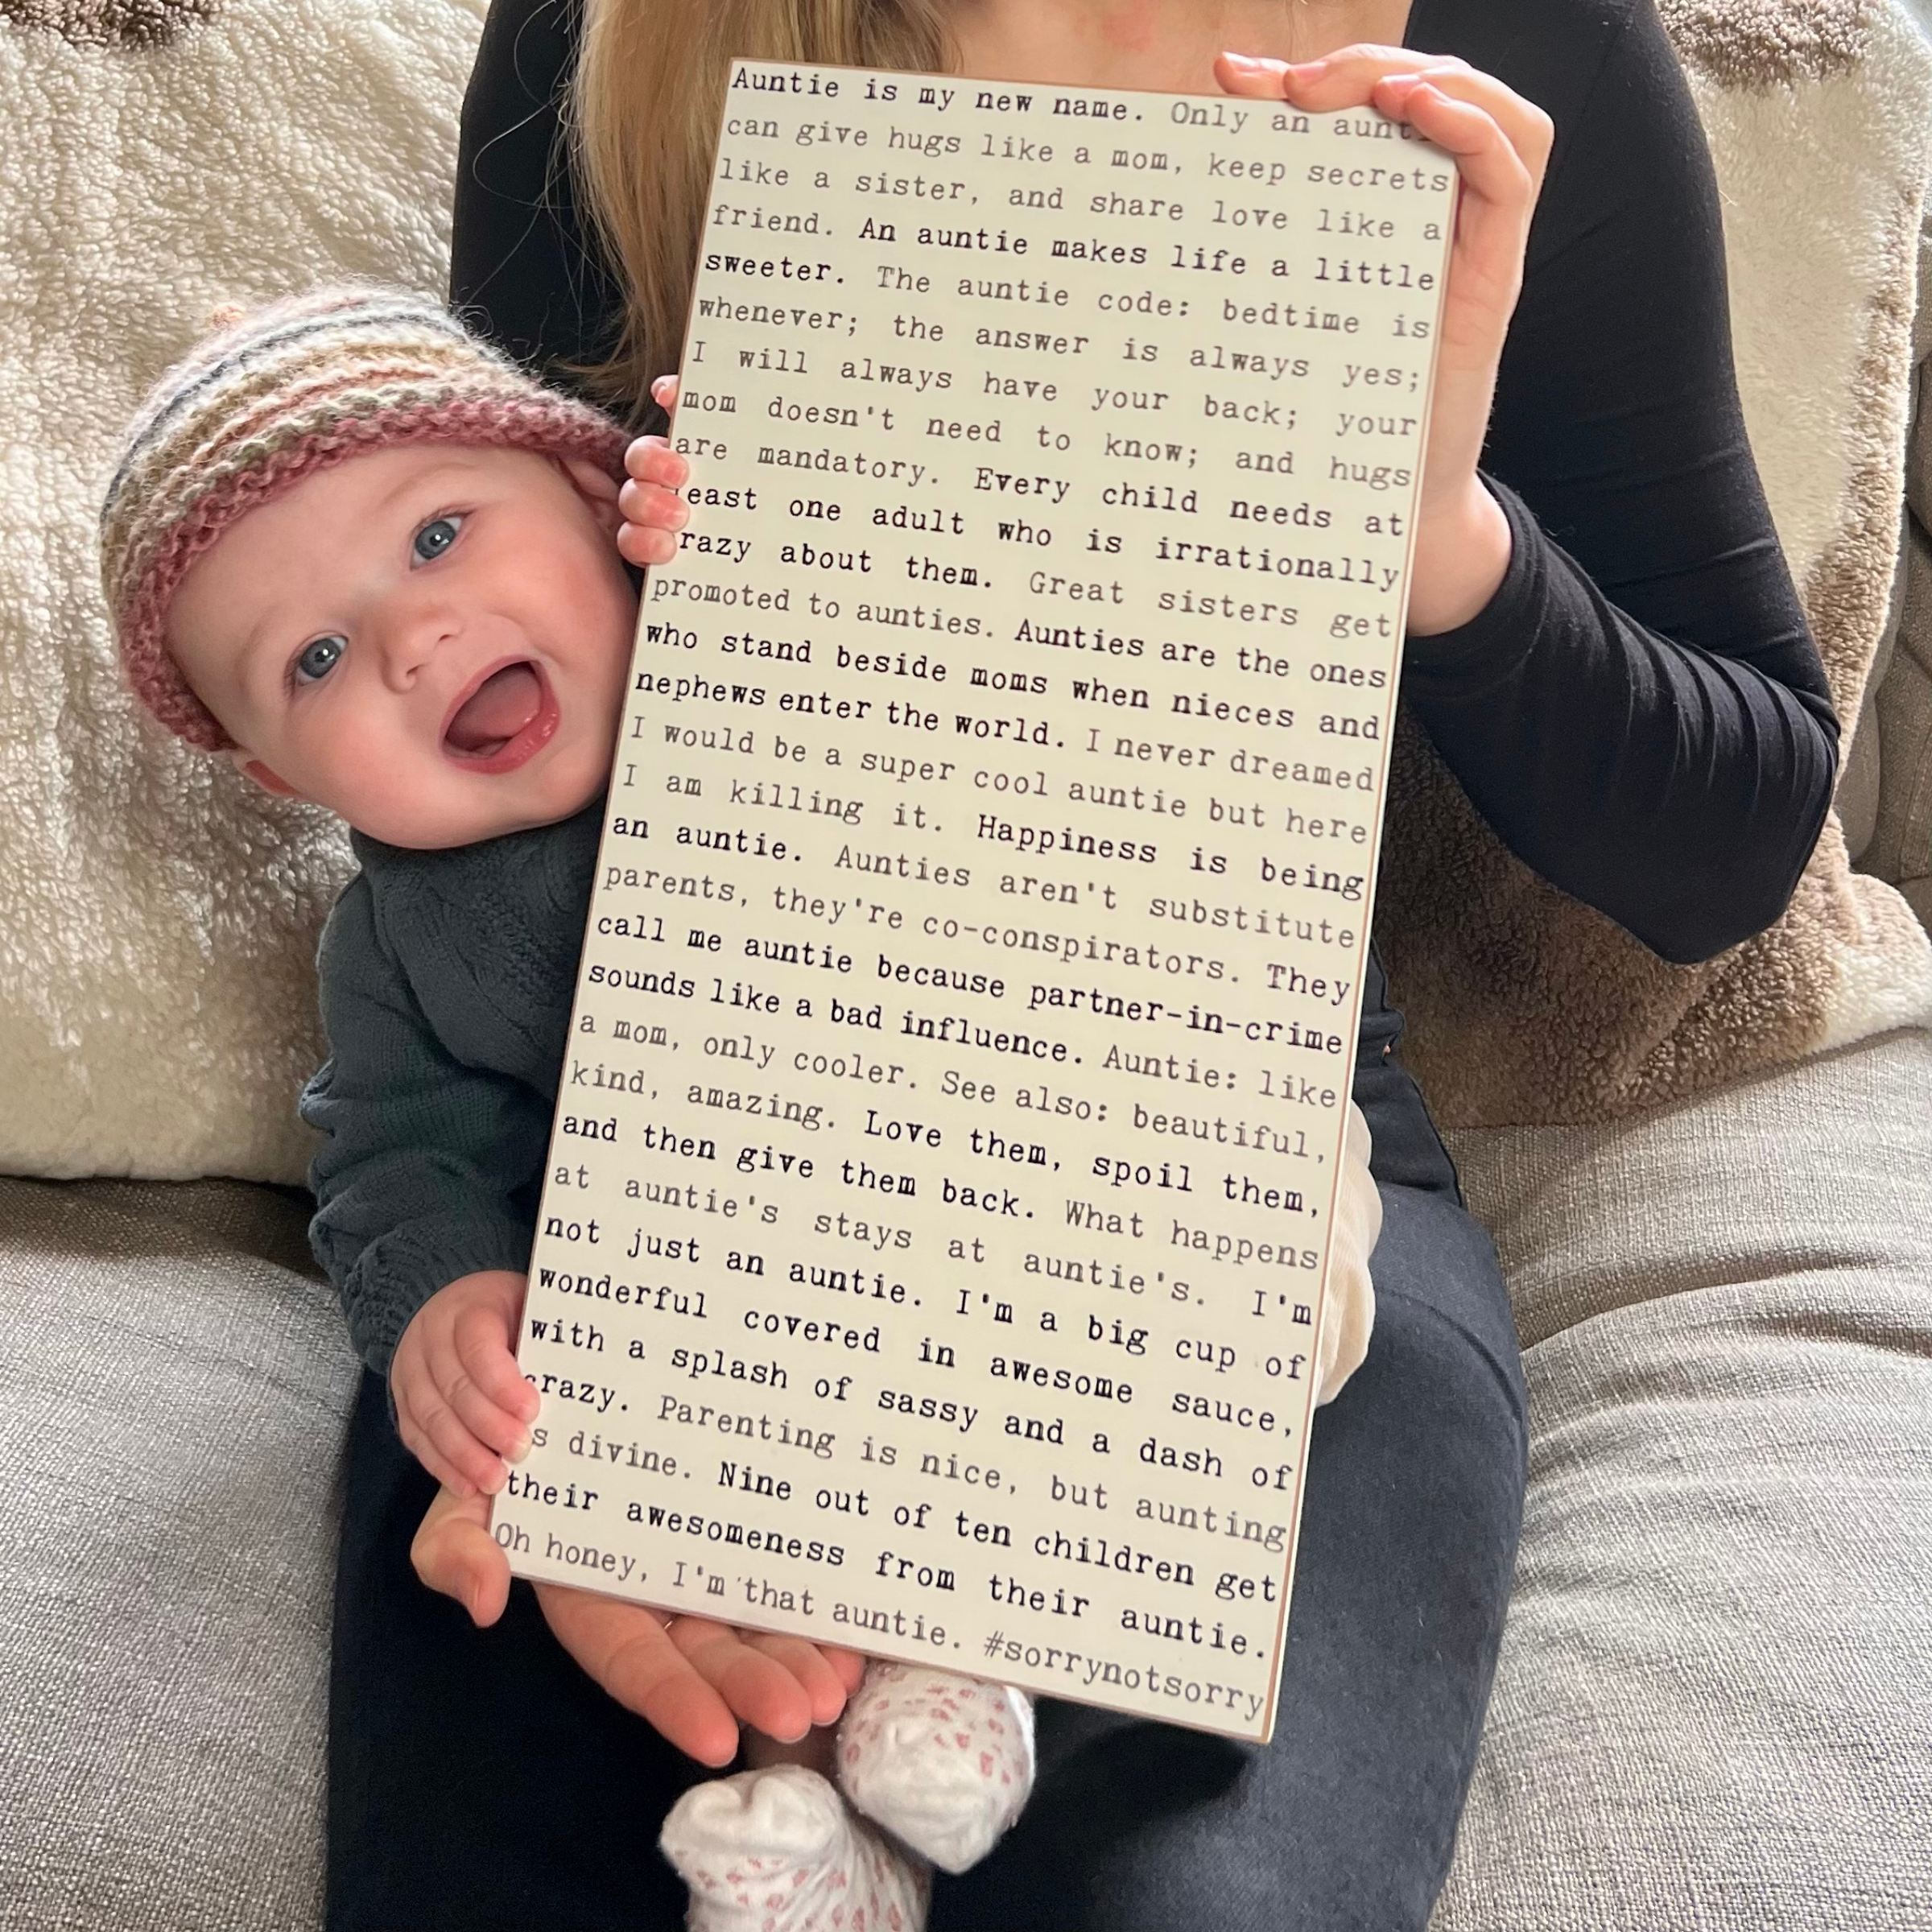 Auntie is my new name. Only an aunt
can give hugs like a mom, keep secrets
like a sister, and share love like a
friend. An auntie makes life a little
sweeter. The auntie code: bedtime is
whenever; the answer is always yes;
I will always have your back; your
mom doesn't need to know; and hugs
are mandatory. Every child needs at
least one adult who is irrationally
crazy about them. Great sisters get
promoted to aunties. Aunties are the ones
who stand beside moms when nieces and
nephews enter the world. I never dreamed
I would be a super cool auntie but here
I am killing it. Happiness is being
an auntie. Aunties aren't substitute
parents, they're co-conspirators. They
call me auntie because partner-in-crime
sounds like a bad influence. Auntie: like
a mom, only cooler. See also: beautiful,
kind, amazing. Love them, spoil them,
and then give them back. What happens
at auntie's stays at auntie's. I'm
not just an auntie. I'm a big cup of
wonderful covered in awesome sauce,
with a splash of sassy and a dash of
crazy. Parenting is nice, but aunting
is divine. Nine out of ten children get
their awesomeness from their auntie.
Oh honey, I'm that auntie. #sorrynotsorry